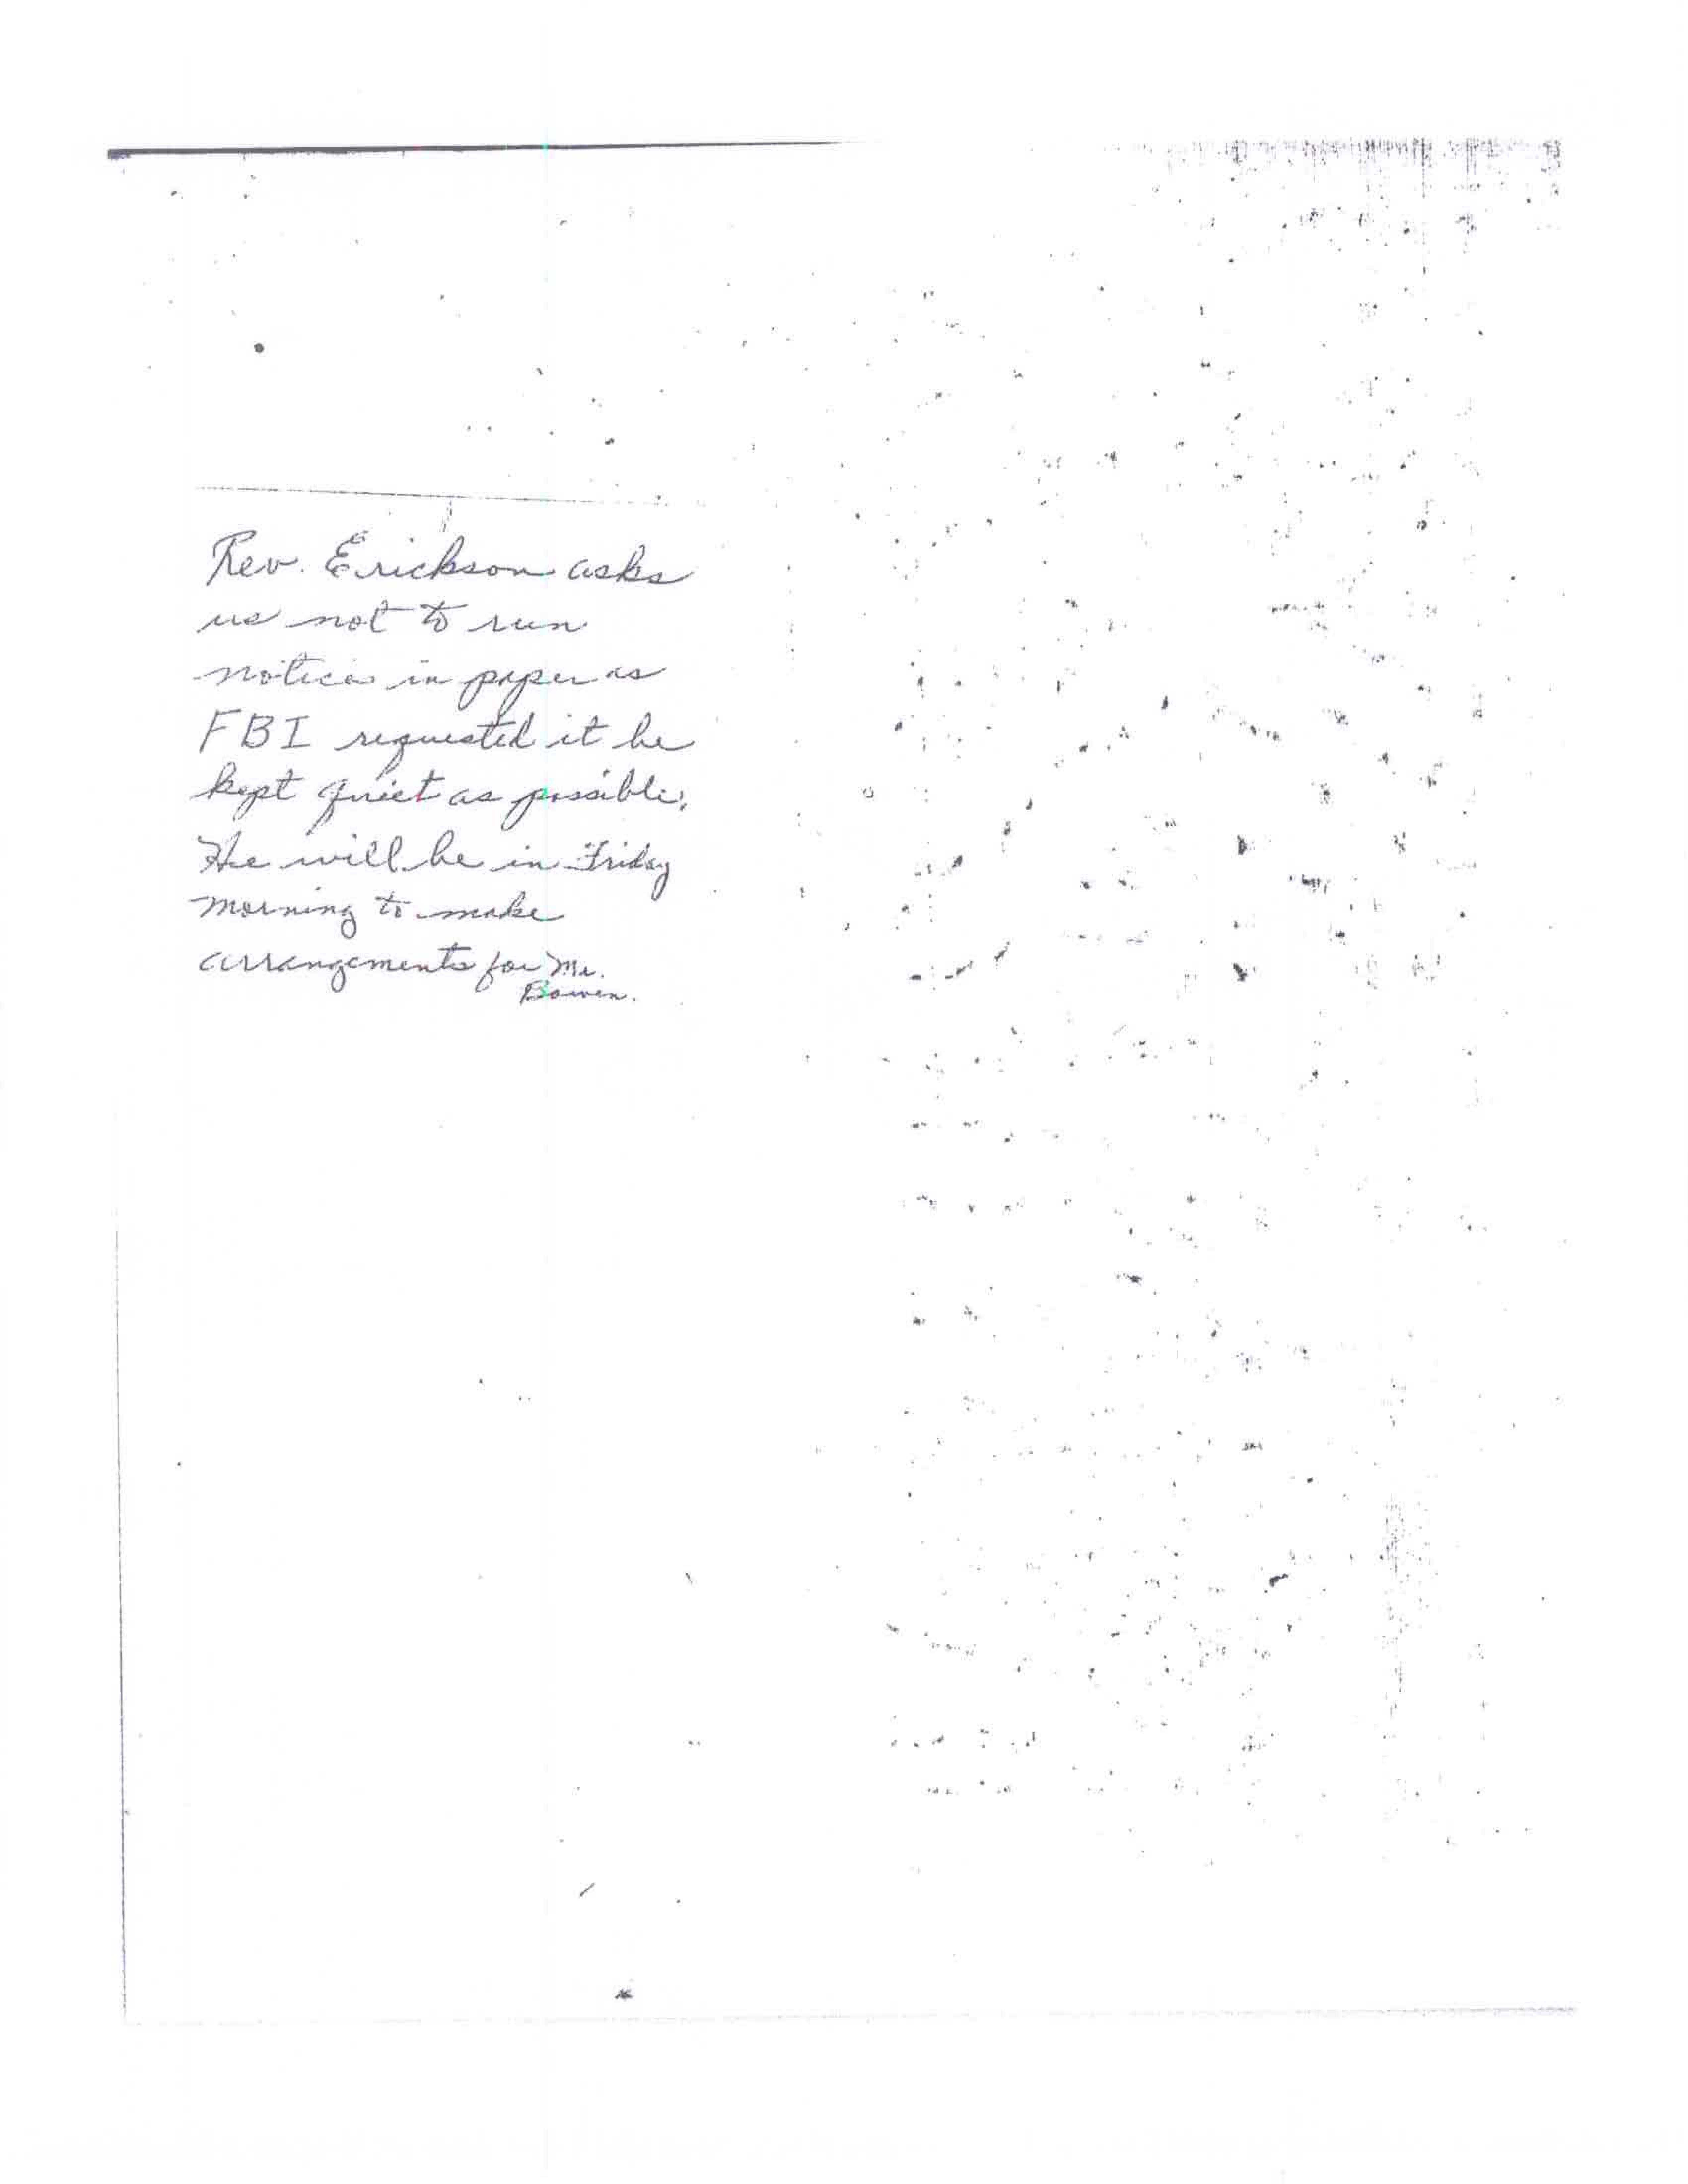 Rev. Erickson asks
us not to run
notices in paper as
FBI requested it be
kept quiet as possible.
He will be in Friday
morning to make
arrangements for Mr.
Bowen.